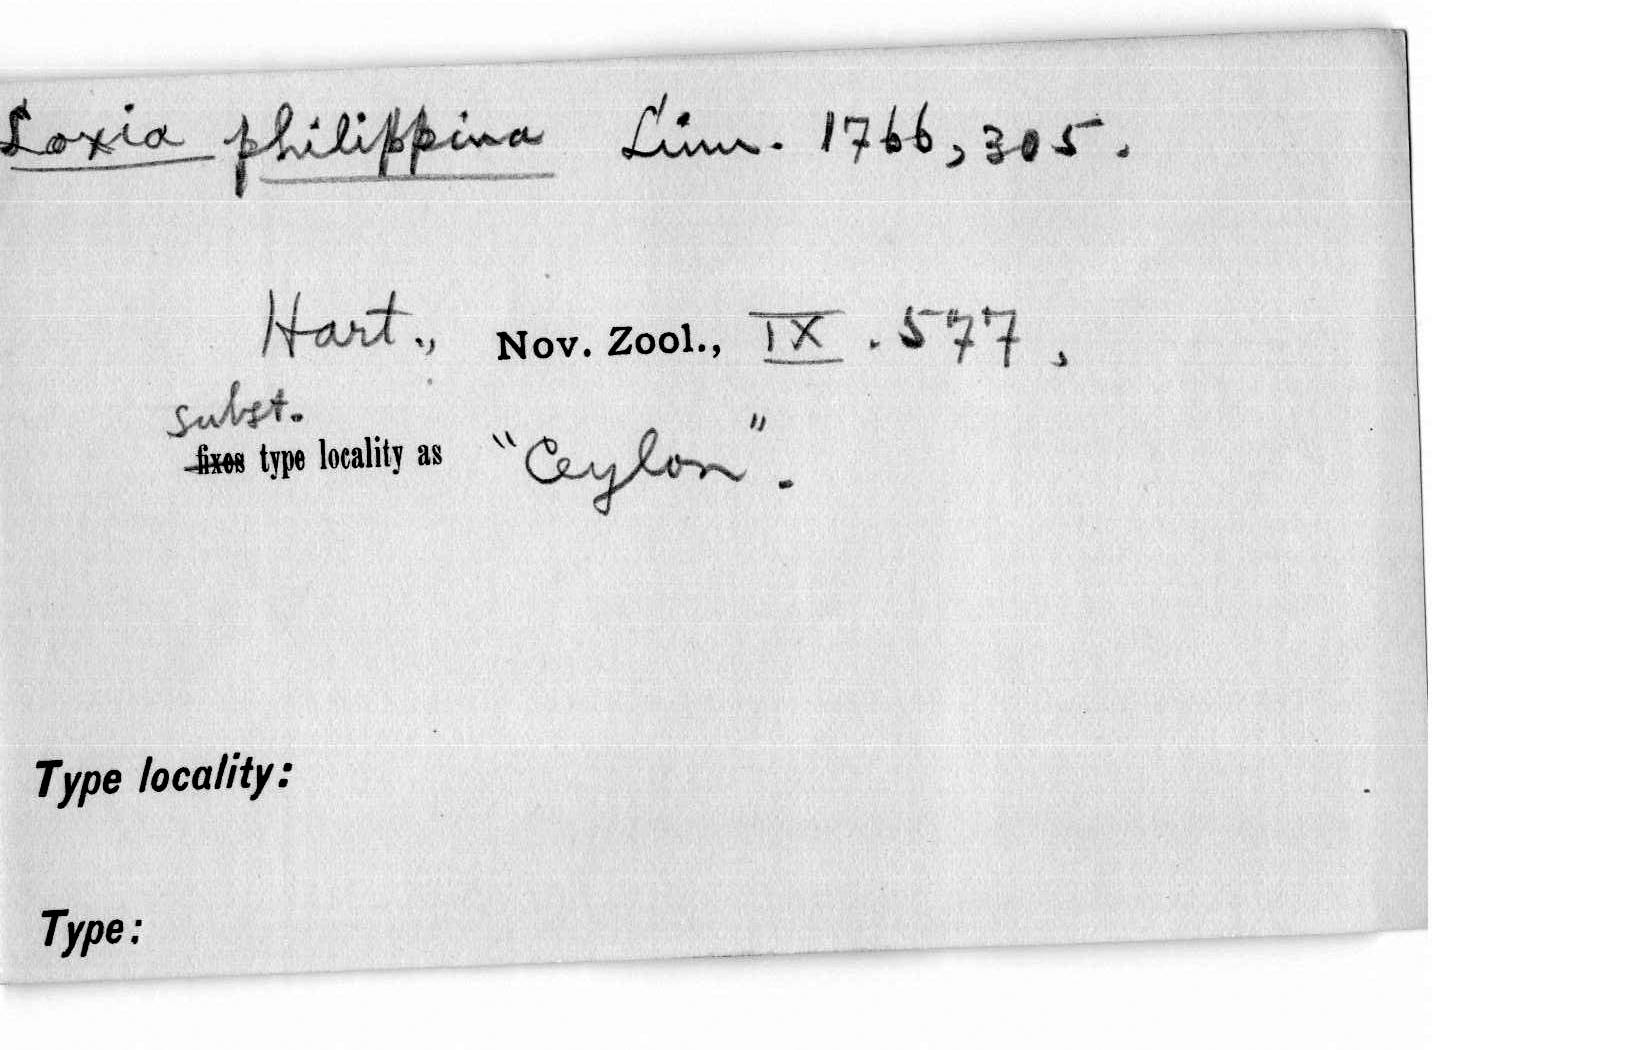 Loxia philippina Linn. 1766, 305.
Hart., Nov. Zool., IX. 577,
subst.
fixes type locality as "Ceylon".
Type locality:
Type: